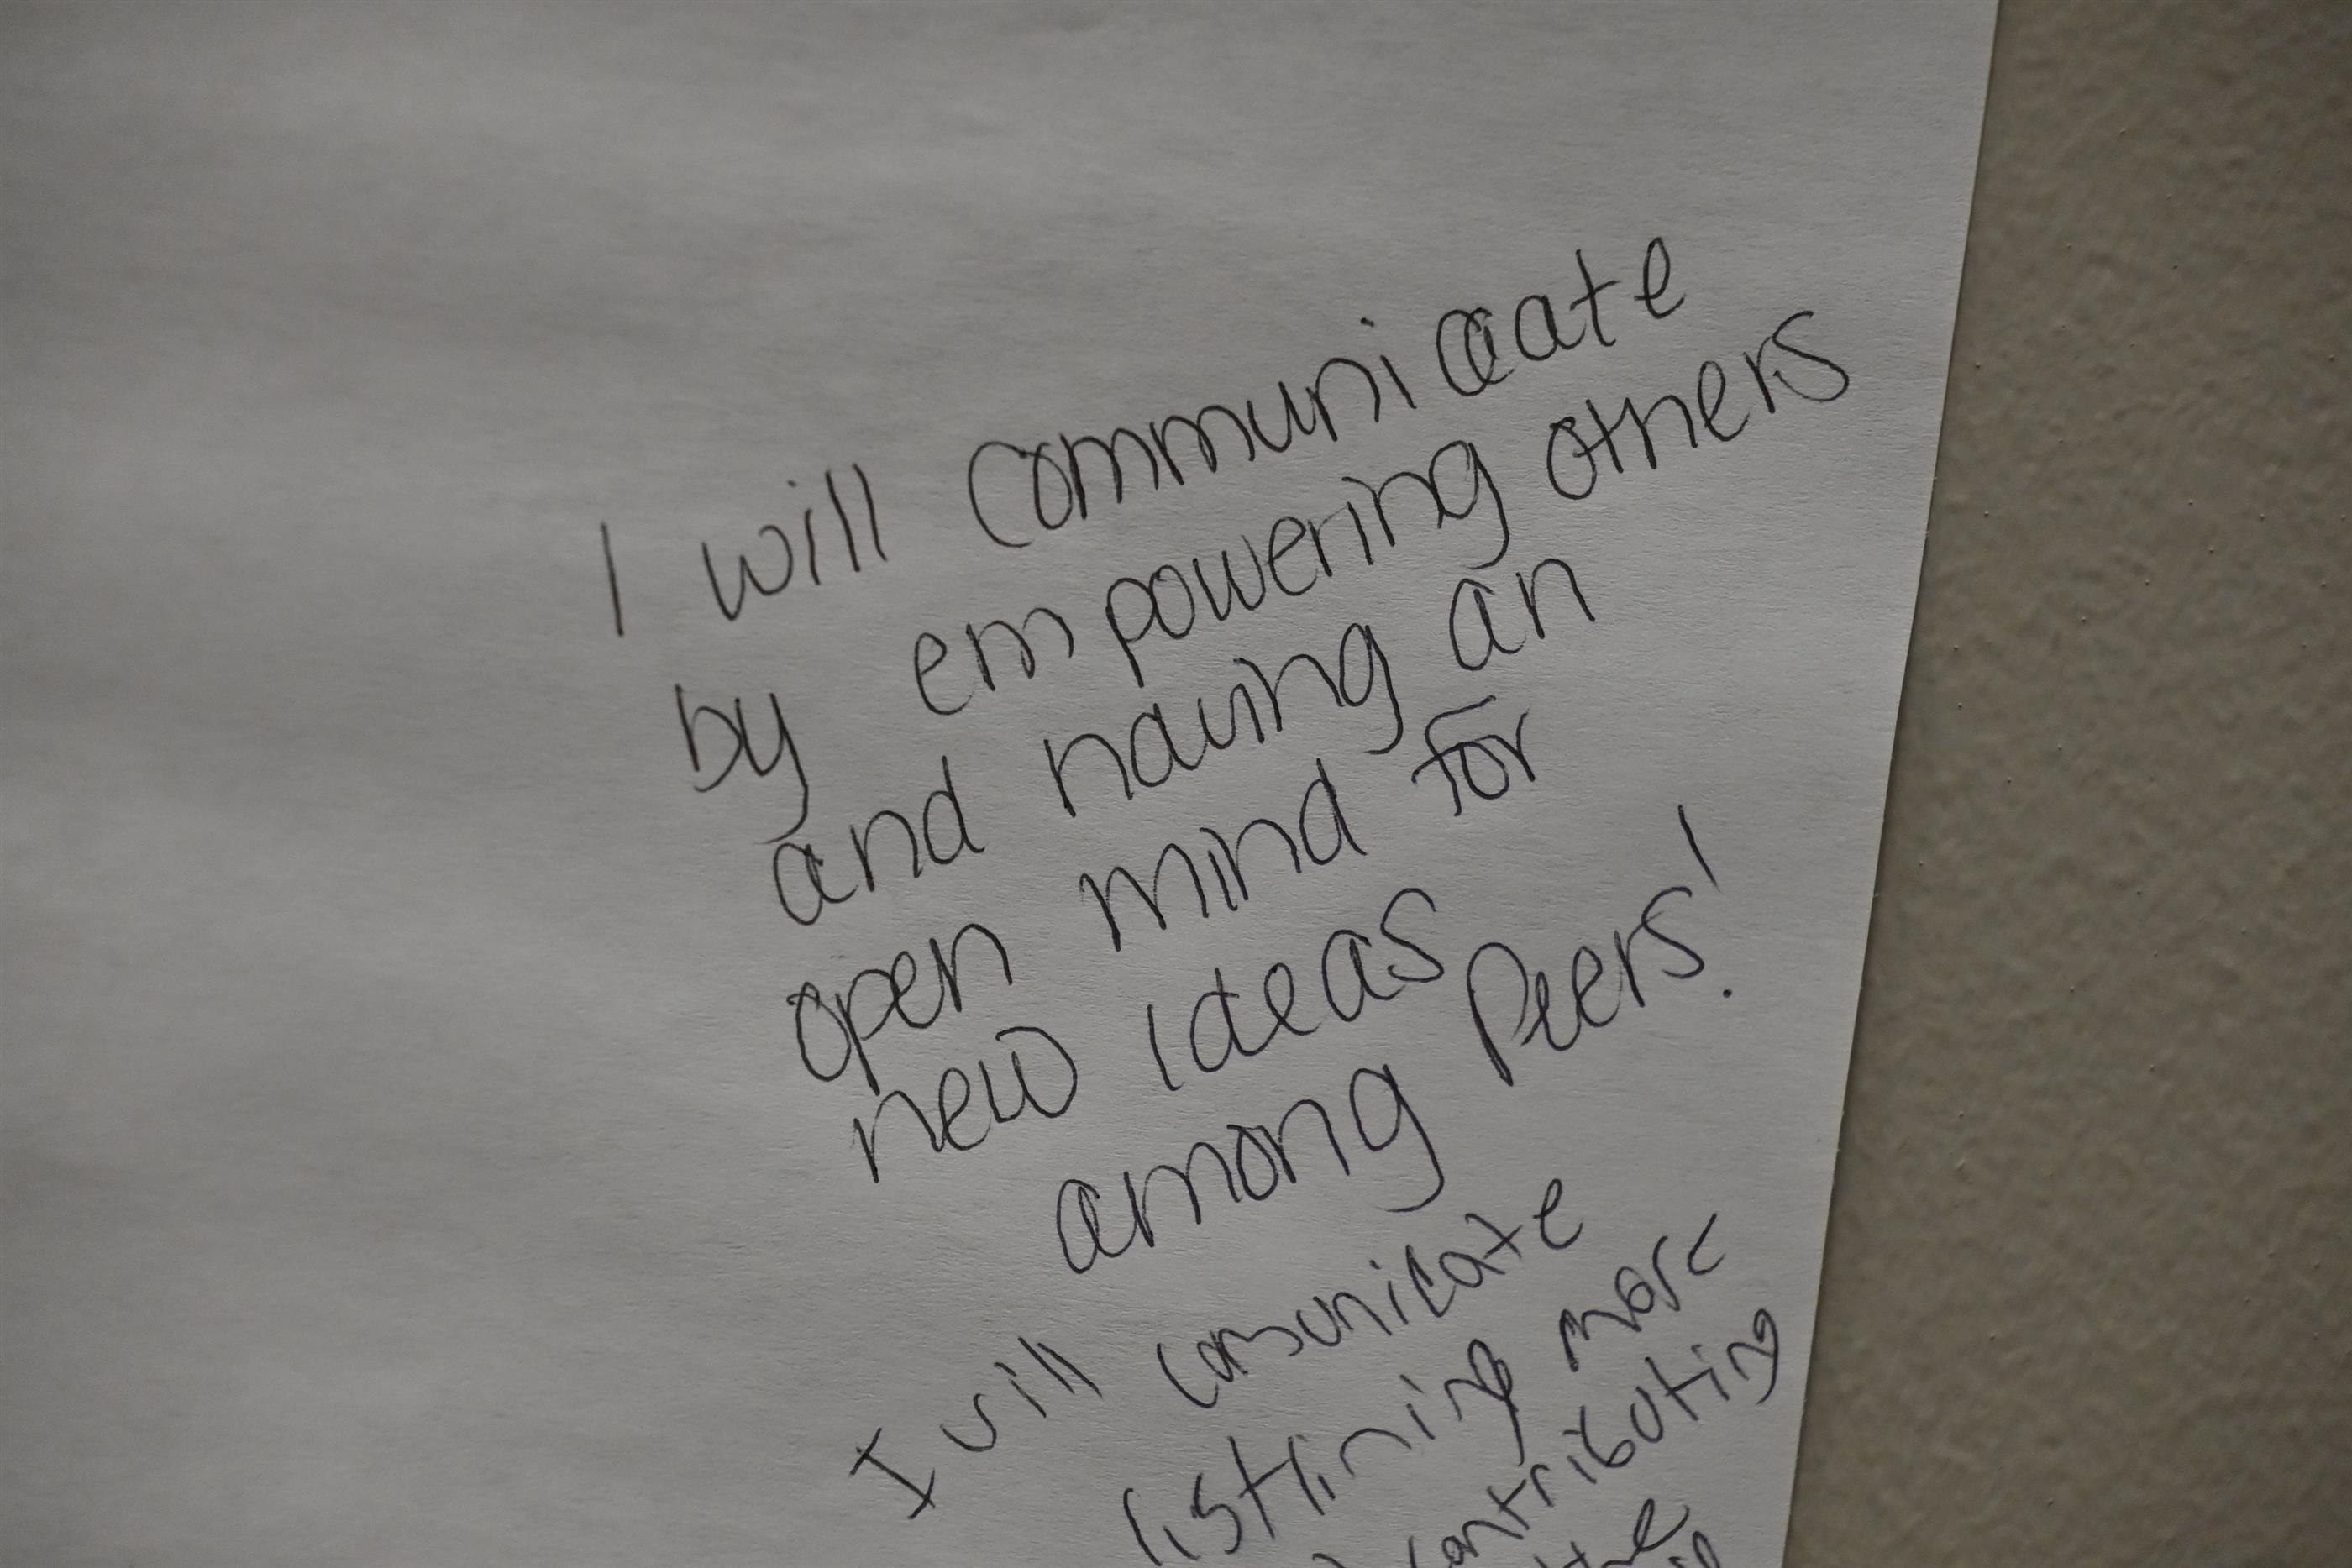 I will communicate
by empowering others
and having an
open mind for
new ideas
among Peers!
I will comunicate
listining more
contributing
the